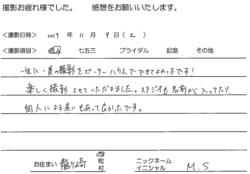 撮影お疲れ様でした。 感想をお願いいたします。
◆撮影日時 2019 年 11 月 9 日 (土)
◆撮影項目 成人 七五三 ブライダル 記念 その他
一生に一度の撮影をピーターハウスでできてよかったです!
楽しく撮影させていただきました。スタジオも名前が入ってたり
個人による違いもあって良かったです。
お住まい 龍ケ崎 市 町 村 ニックネーム イニシャル M.S